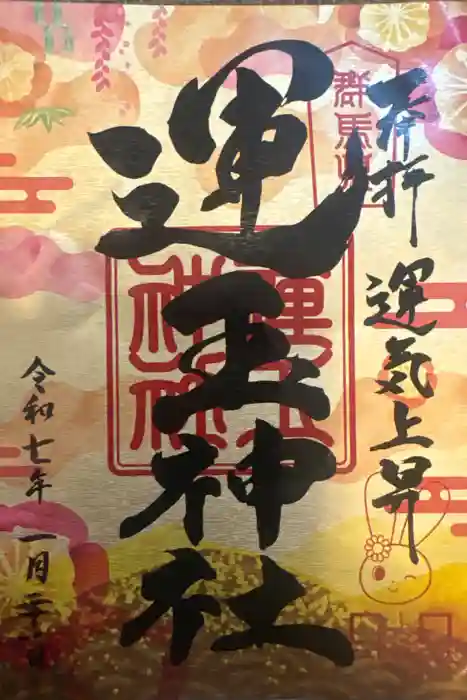 奉拝
運気上昇
群馬
運玉神社
令和七年
一月二十